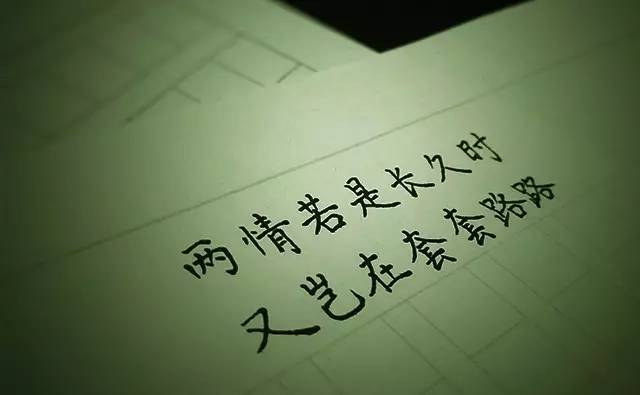 两情若是长久时
又岂在套套路路